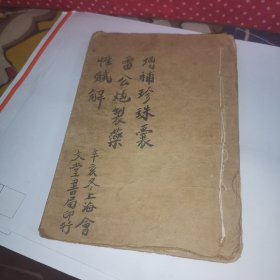 增補珍珠囊
雷公炮製藥
性賦解
辛亥冬上海會
文堂書局印行